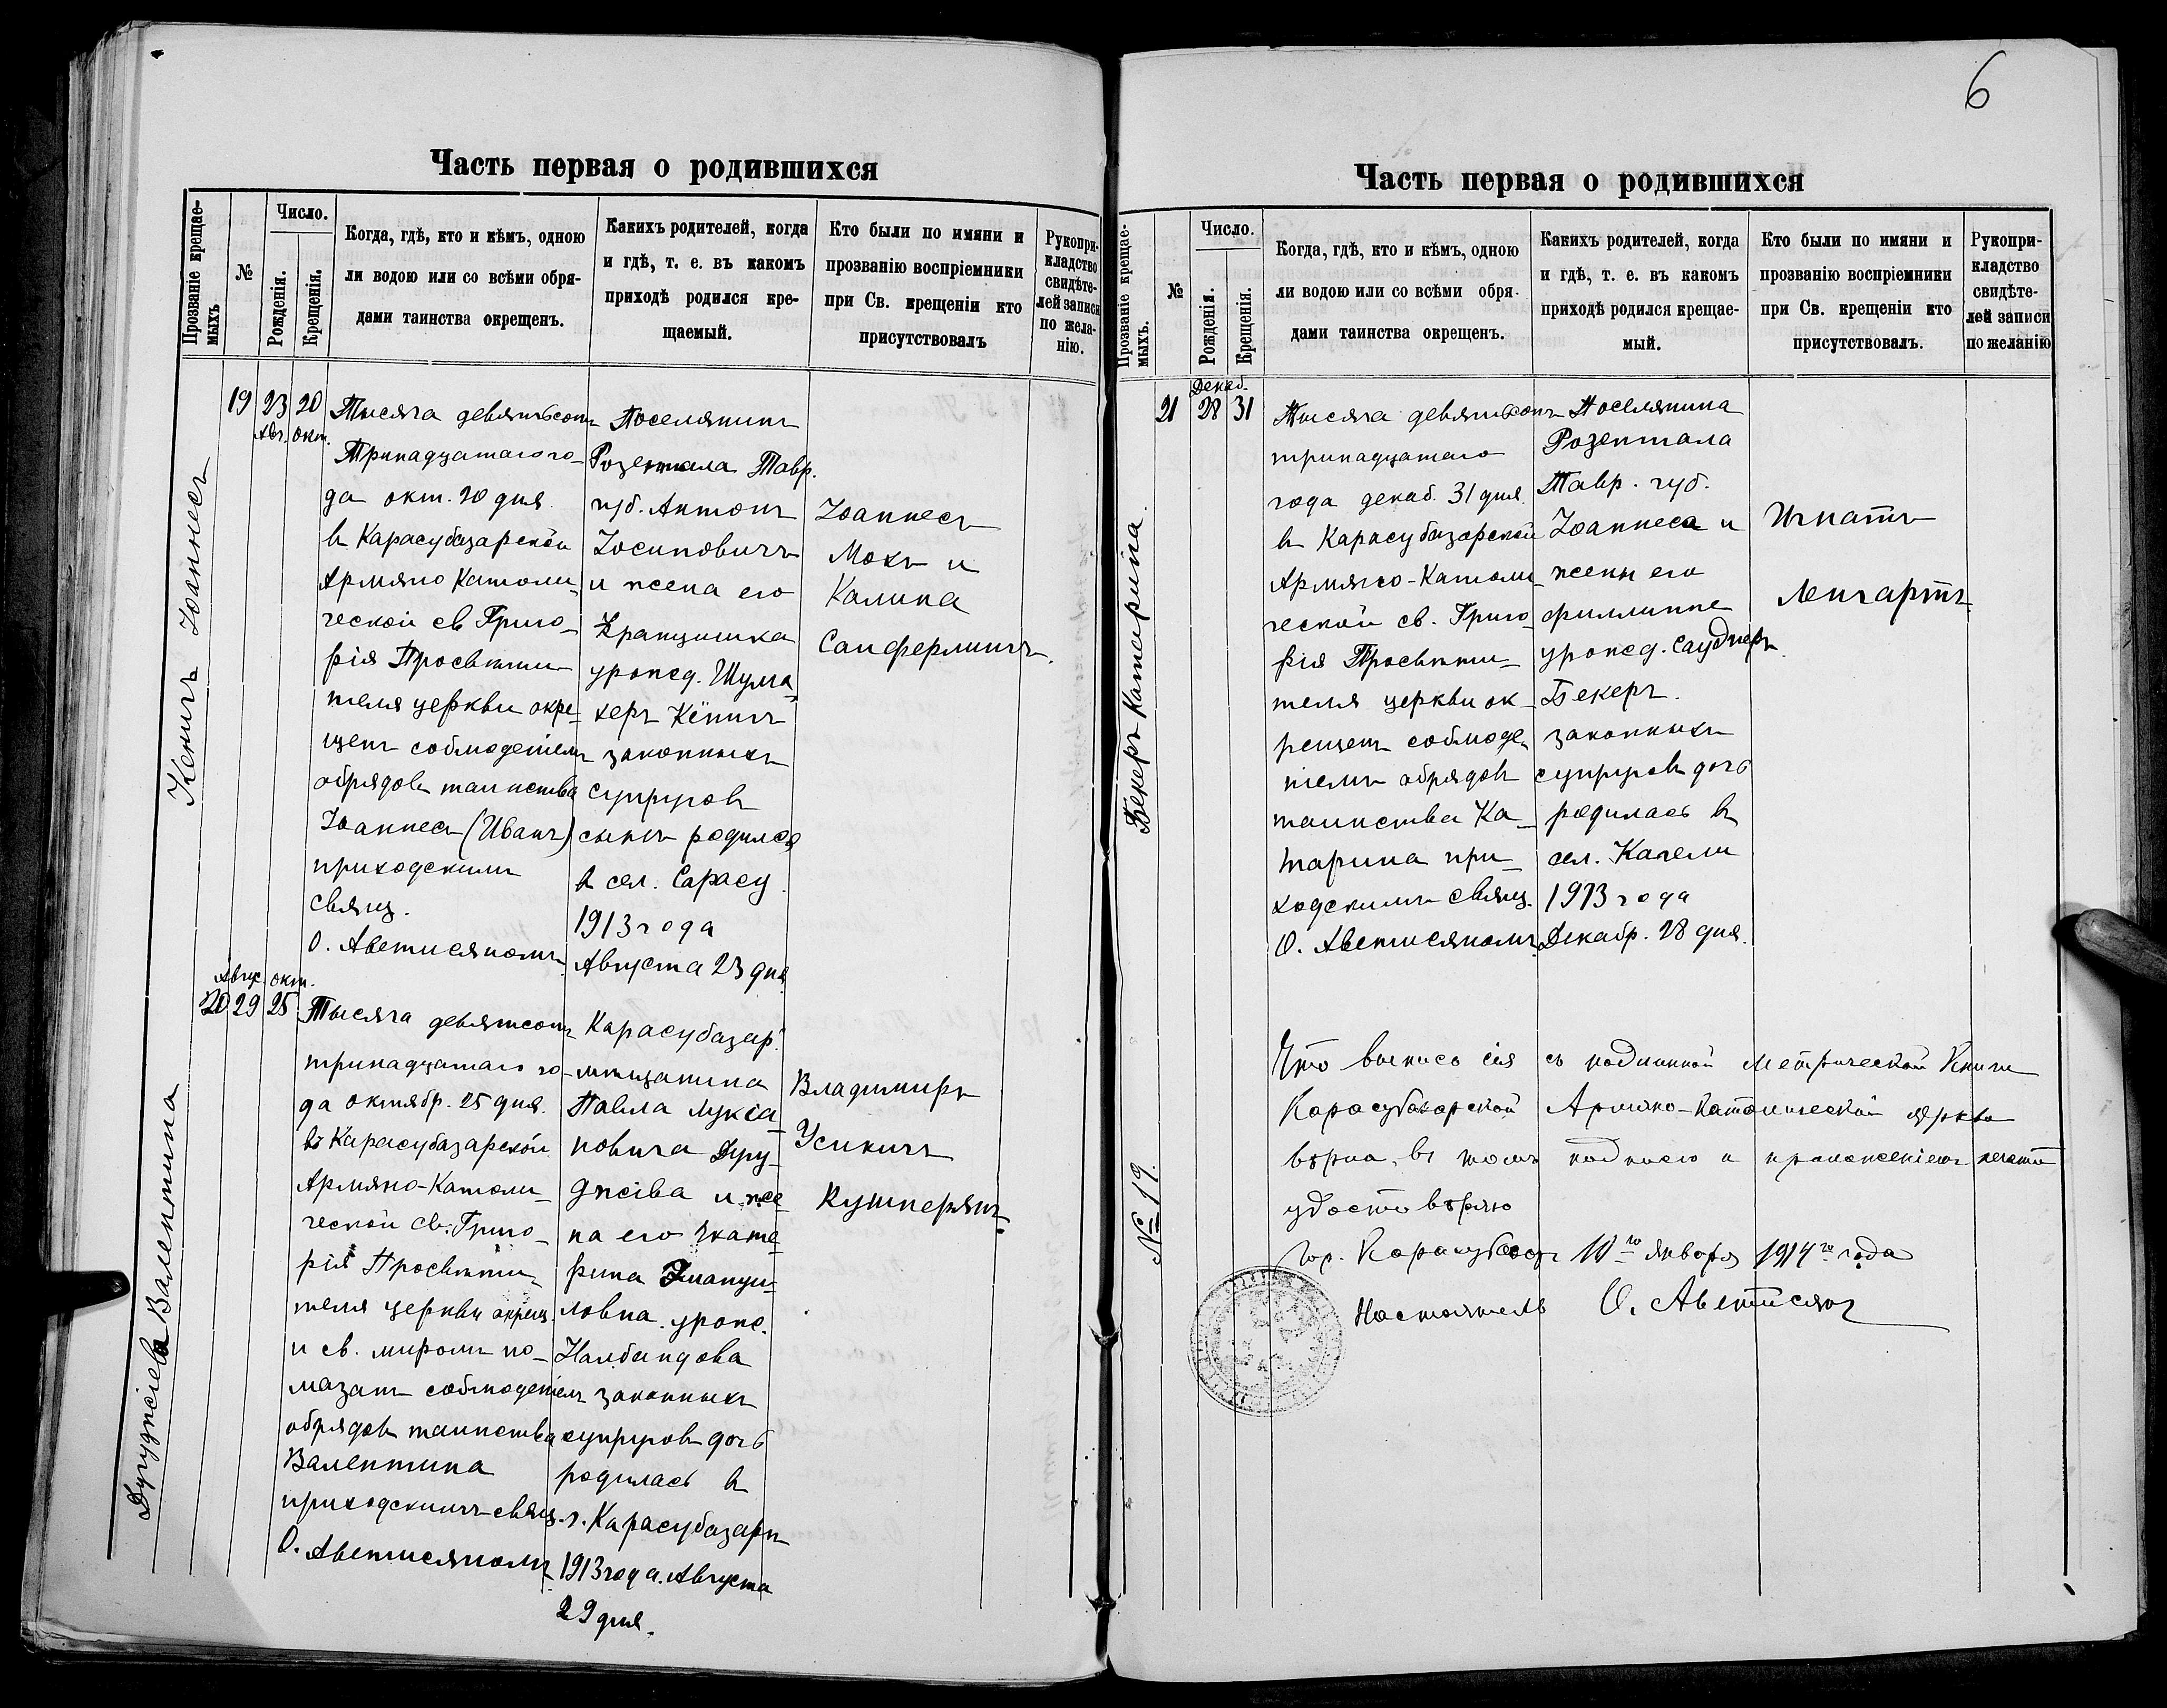 Часть первая о родившихся
Прозваніе крещае-
мыхъ
№
Число.
Рожденія.
Крещенія.
Когда, гдѣ, кто и кѣмъ, одною
ли водою или со всѣми обря-
дами таинства окрещенъ.
Какихъ родителей, когда
и гдѣ, т. е. въ какомъ
приходѣ родился кре-
щаемый.
Кто были по имяни и
прозванію воспріемники
при Св. крещеніи кто
присутствовалъ
Рукопри-
кладство
свидѣте-
лей записи
по жела-
нію.
Кенигъ Іоаннесъ
19
23
Авг.
20
окт.
Тысяча девятьсотъ
Тринадцатаго го-
да окт. 20 дня
въ Карасубазарской
Армяно Католи-
ческой св Григо-
рія Просвѣти-
теля церкви окре-
щенъ соблюденіемъ
обрядовъ таинства
Іоаннесъ (Иванъ)
приходскимъ
свящ.
О. Аветисяномъ
Поселянинъ
Розентала Тавр.
губ. Антонъ
Іосиповичъ
и жена его
Францишка
урожд. Шума-
херъ Кёнигъ
законныхъ
супруговъ
сынъ родился
въ сел. Сарасу
1913 года
Августа 23 дня
Іоаннесъ
Мохъ и
Калина
Санферлингъ.
Друджіева Валентина
20
Авгус.
29
окт.
25
Тысяча девятсотъ
тринадцатаго го-
да октябр. 25 дня.
въ Карасубазарской
Армяно-Католи-
ческой св. Григо-
рія Просвѣти-
теля церкви окрещ.
и св. миромъ по-
мазанъ соблюденіемъ
обрядовъ таинства
Валентина
приходскимъ свящ.
О. Аветисяномъ
Карасубазар.
мѣщанина
Павла Лукіа-
новича Дру-
джіева и же-
на его Екате-
рина Эмануи-
ловна урож.
Налбандова
законныхъ
супруговъ дочь
родилась въ
г. Карасубазарѣ
1913 года. Августа
29 дня.
Владимиръ
Кушнерянъ
6
Часть первая о родившихся
Прозваніе крещае-
мыхъ.
№
Число.
Рожденія.
Крещенія.
Когда, гдѣ, кто и кѣмъ, одною
ли водою или со всѣми обря-
дами таинства окрещенъ.
Какихъ родителей, когда
и гдѣ, т. е. въ какомъ
приходѣ родился крещае-
мый.
Кто были по имяни и
прозванію воспріемники
при Св. крещеніи кто
присутствовалъ.
Рукопри-
кладство
свидѣте-
лей записи
по желанію
Бекеръ Катерина.
21
Декаб.
28
31
Тысяча девятьсотъ
тринадцатаго
года декаб. 31 дня.
въ Карасубазарской
Армяно-Католи-
ческой св. Григо-
рія Просвѣти-
теля церкви ок-
рещенъ соблюде-
ніемъ обрядовъ
таинства Ка-
тарина при-
ходскимъ свящ.
О. Аветисяномъ
Поселянина
Розентала
Тавр. губ.
Іоаннеса и
жены его
филлиппе
урожд.
Бекеръ.
законныхъ
супруговъ дочь
родилась въ
сел.
1913 года
Декабр. 28 дня.
Игнатъ
Ленгартъ
№ 19.
Что выпись сія съ подлинной Метрической Книги
Карасубазарской Армяно-Католической церкви
вѣрна, въ томъ подписью и приложеніемъ печати
удостовѣряю
Гор. Карасубазаръ 10го января 1914го года
Настоятель О. Аветисянъ